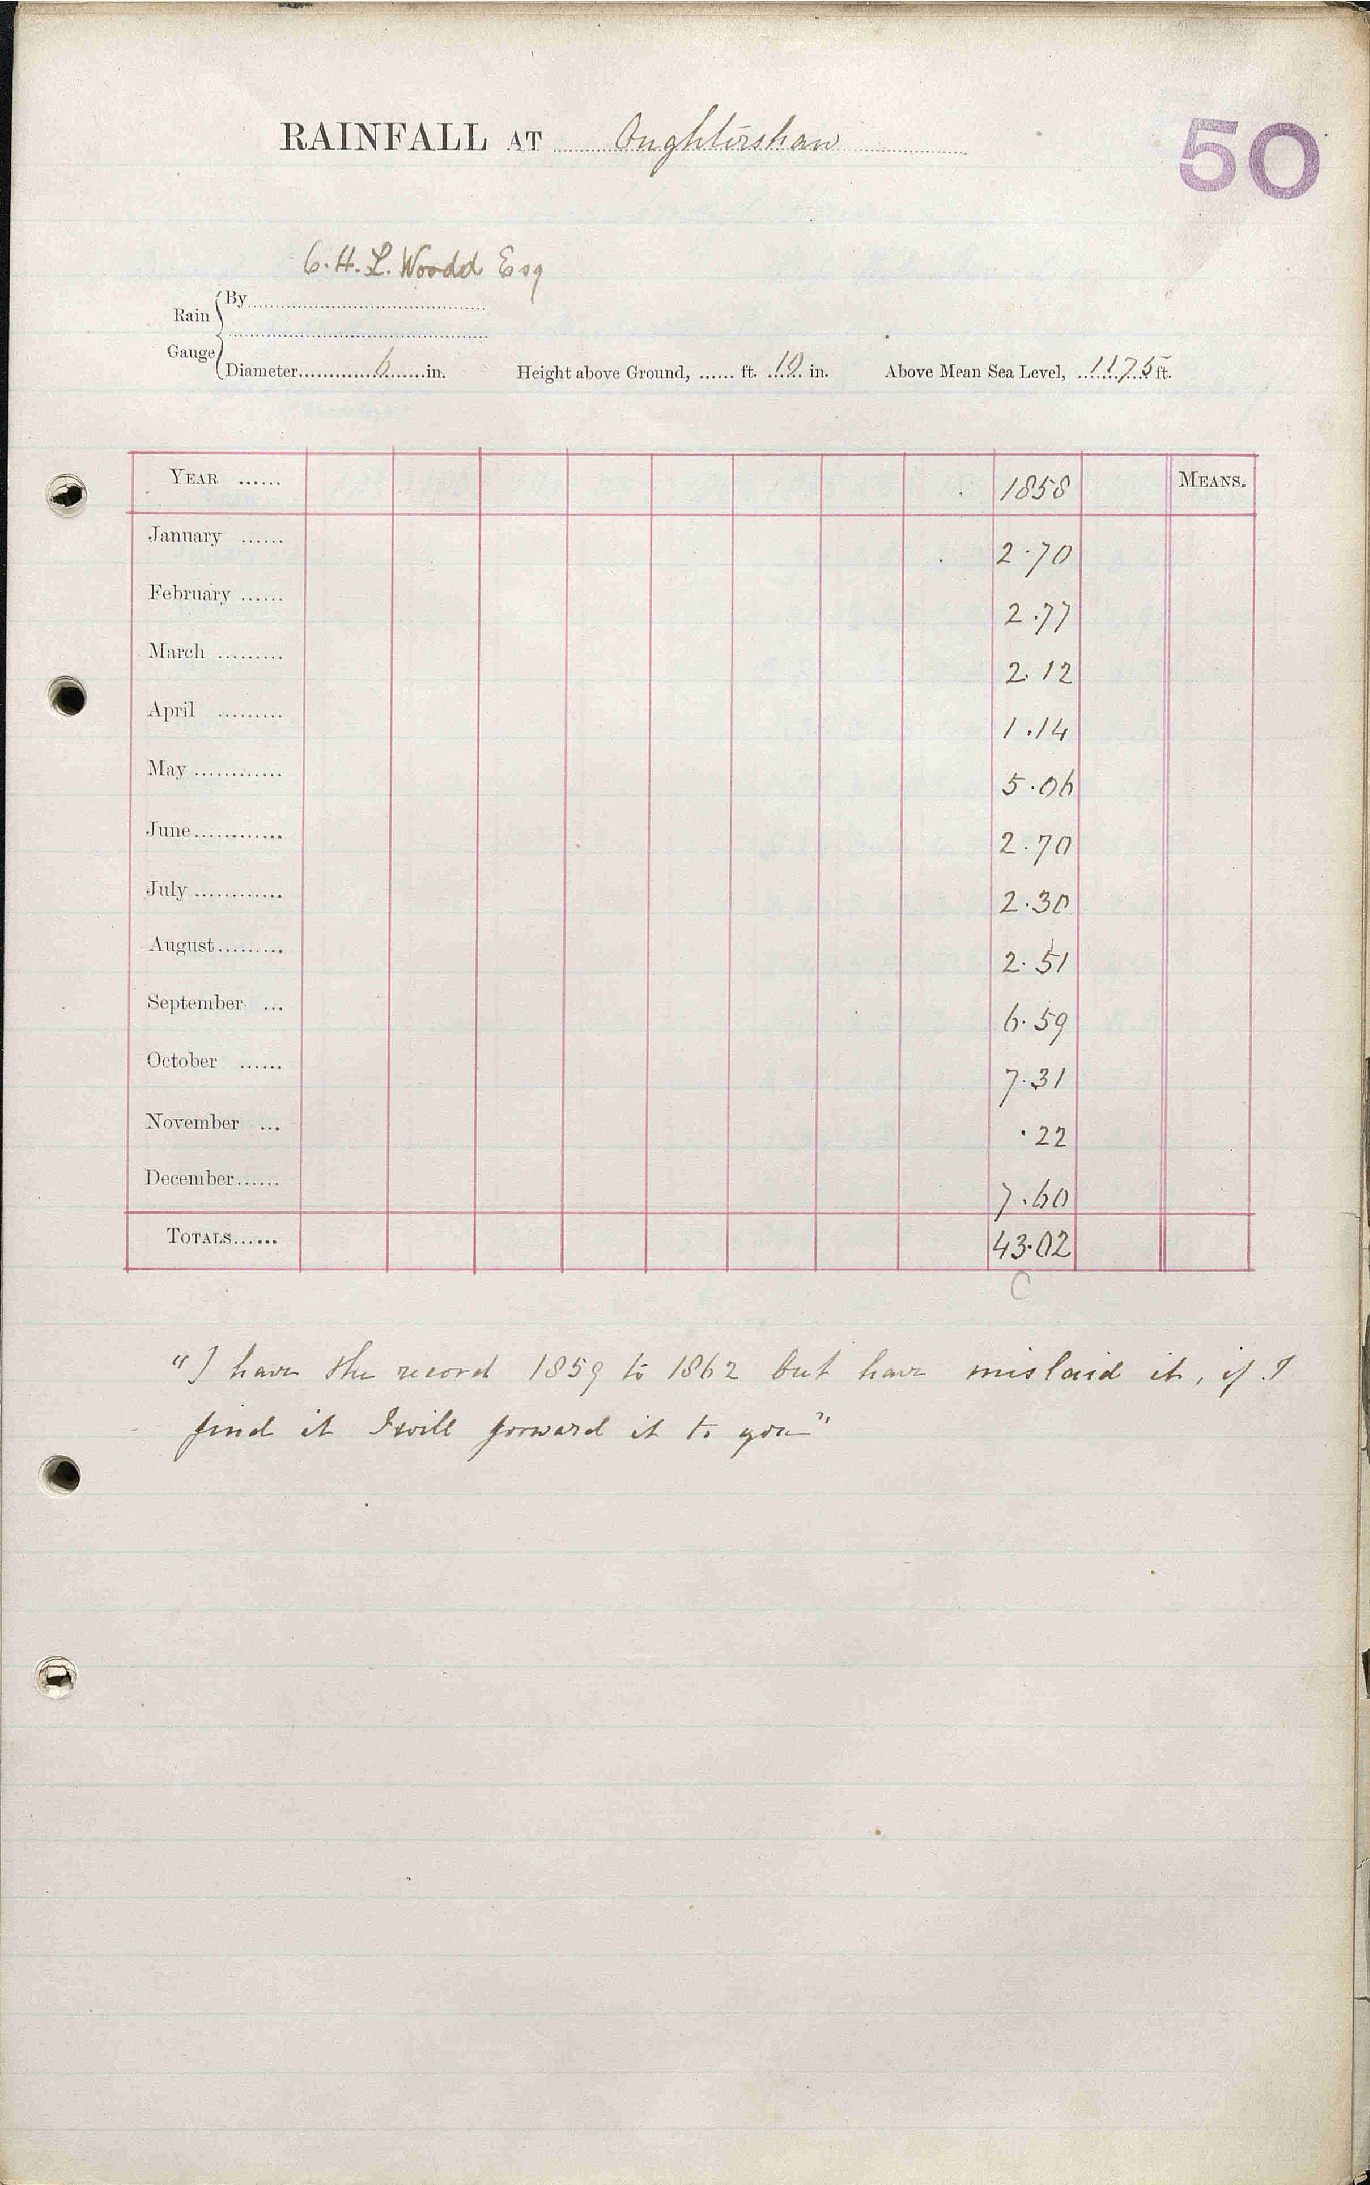 RAINFALL AT Oughtershaw
50
C. H. L. Woodd Esq
Rain Gauge
By
Diameter 6 in. Height above Ground, ft. 10 in. Above Mean Sea Level, 1175 ft.
YEAR 1858 MEANS.
January 2.70
February 2.77
March 2.12
April 1.14
May 5.06
June 2.70
July 2.30
August 2.51
September 6.59
October 7.31
November .22
December 7.60
TOTALS 43.02
C
"I have the record 1859 to 1862 but have mislaid it, if I
find it I will forward it to you"